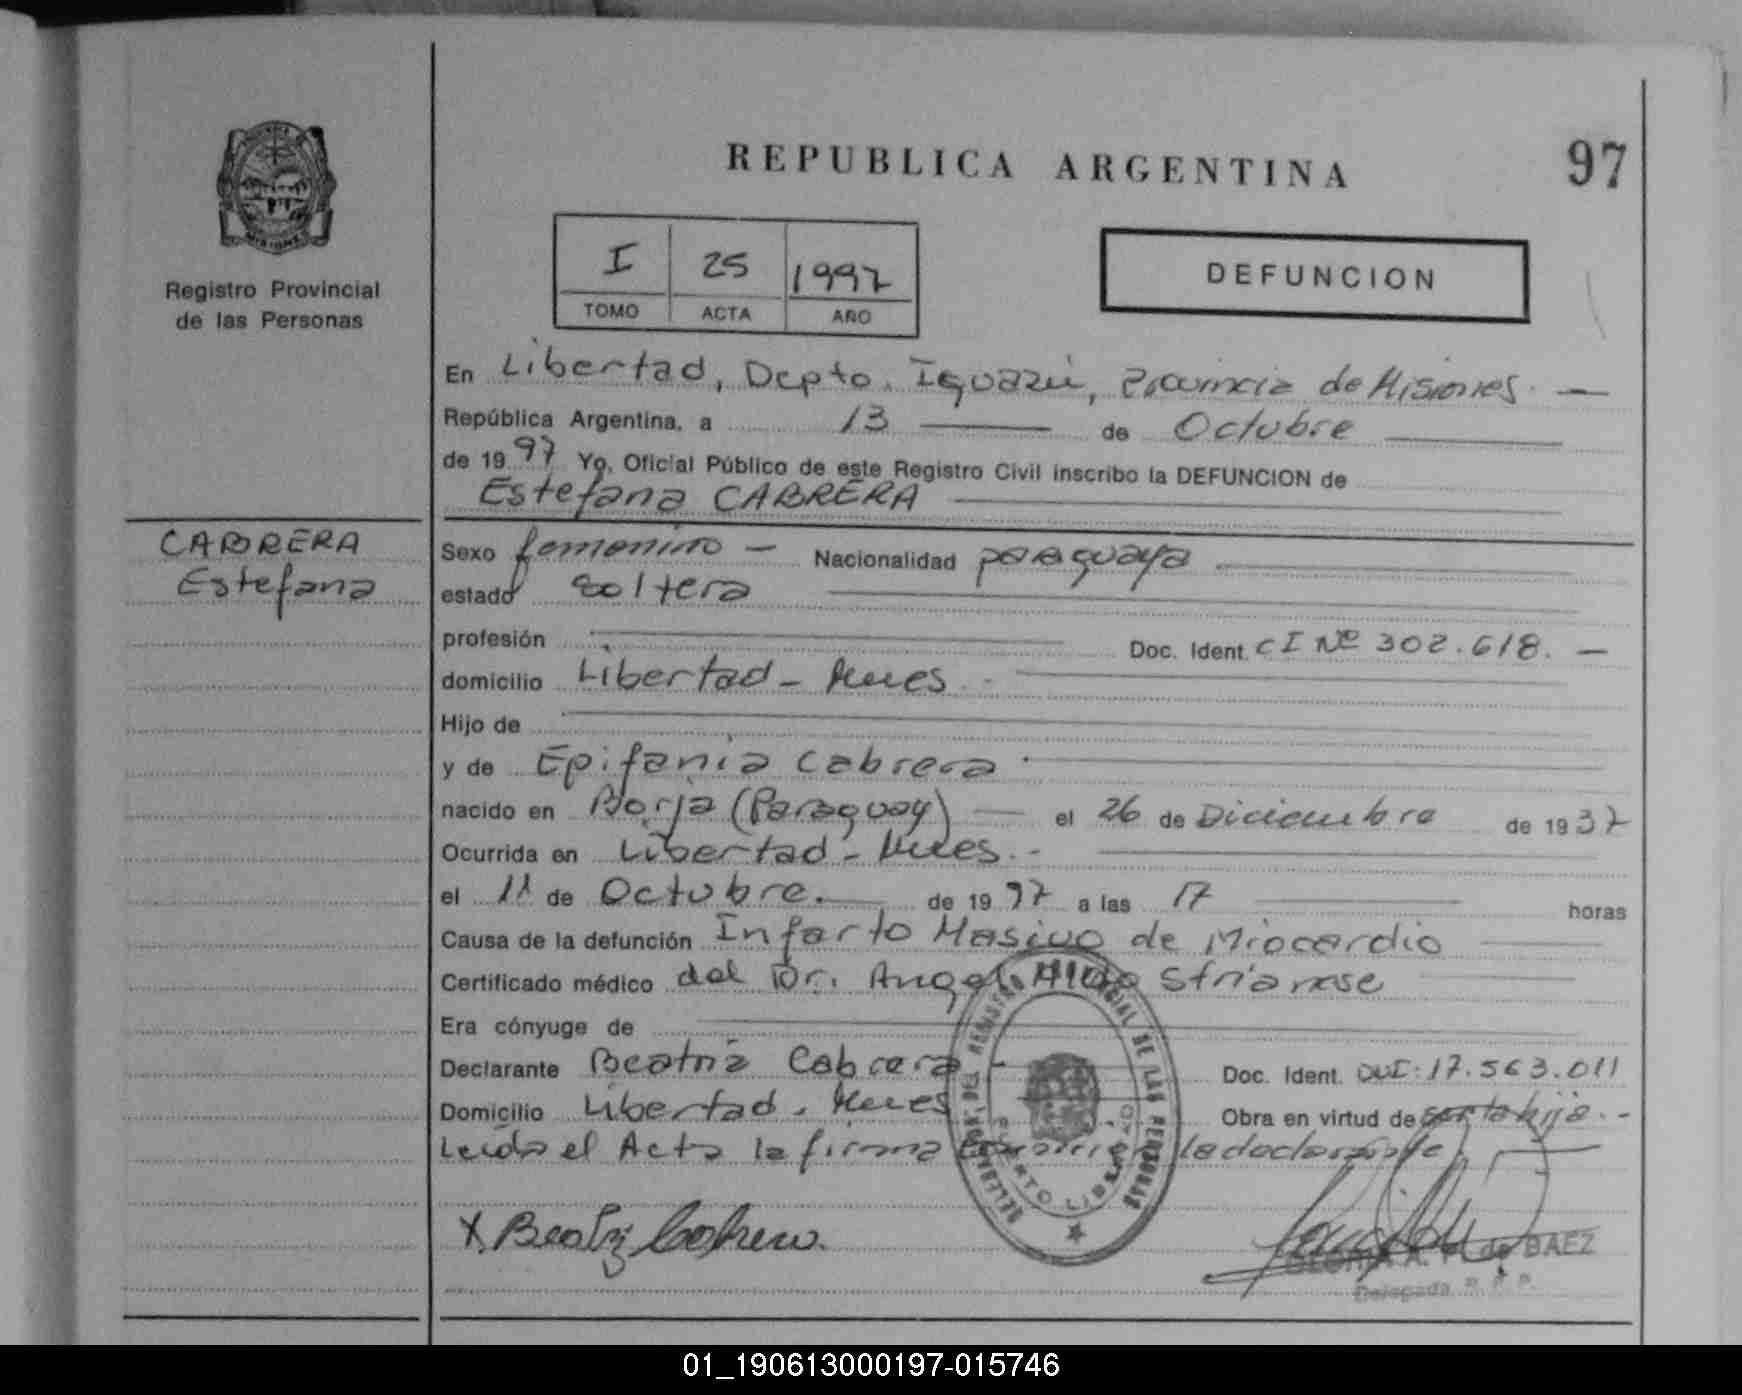 REPUBLICA ARGENTINA
97
MISIONES
Registro Provincial
de las Personas
I 25 1997
TOMO ACTA AÑO
DEFUNCION
En Libertad, Depto. Iguazú, Provincia de Misiones. —
República Argentina, a 13 — de Octubre —
de 1997 Yo, Oficial Público de este Registro Civil inscribo la DEFUNCION de
Estefana CABRERA
CABRERA
Estefana
Sexo femenino — Nacionalidad paraguaya
estado soltera
profesión — Doc. Ident. CI Nº 302.618. —
domicilio Libertad - Mnes
Hijo de —
y de Epifania Cabrera
nacido en Borja (Paraguay) — el 26 de Diciembre de 1937
Ocurrida en Libertad - Mnes. -
el 11 de Octubre. — de 1997 a las 17 — horas
Causa de la defunción Infarto Masivo de Miocardio —
Certificado médico del Dr. Angel Aldo —
Era cónyuge de —
Declarante Beatriz Cabrera - Doc. Ident. DNI: 17.563.011
Domicilio Libertad. Mnes Obra en virtud de ser la hija. -
Leída el Acta la firma la declarante
DEL REGISTRO PROVINCIAL DE LAS PERSONAS
PUERTO LIBERTAD
X Beatriz Cabrera.
GLORIA A. de BAEZ
Delegada R. P. P.
01_190613000197-015746